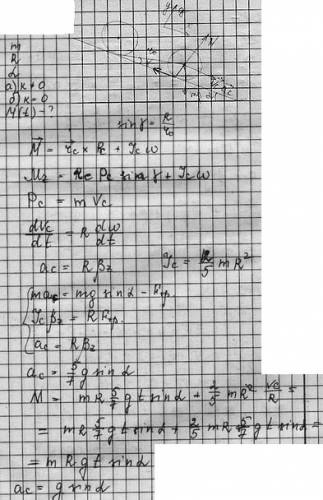 m
R
α
a) k ≠ 0
б) k = 0
M(t) - ?
sin γ = R/r₀
M⃗ = r⃗c × P⃗c + Jc ω
Mz = rc Pc sin γ + Jc ω
Pc = m Vc
dVc/dt = R dω/dt
ac = R βz Jc = 2/5 m R²
mac = mg sin α - Fтр.
Jc βz = R Fтр.
ac = R βz
ac = 5/7 g sin α
M = mR 5/7 g t sin α + 2/5 m R² Vc/R =
= mR 5/7 g t sin α + 2/5 mR 5/7 g t sin α =
= m R g t sin α
ac = g sin α